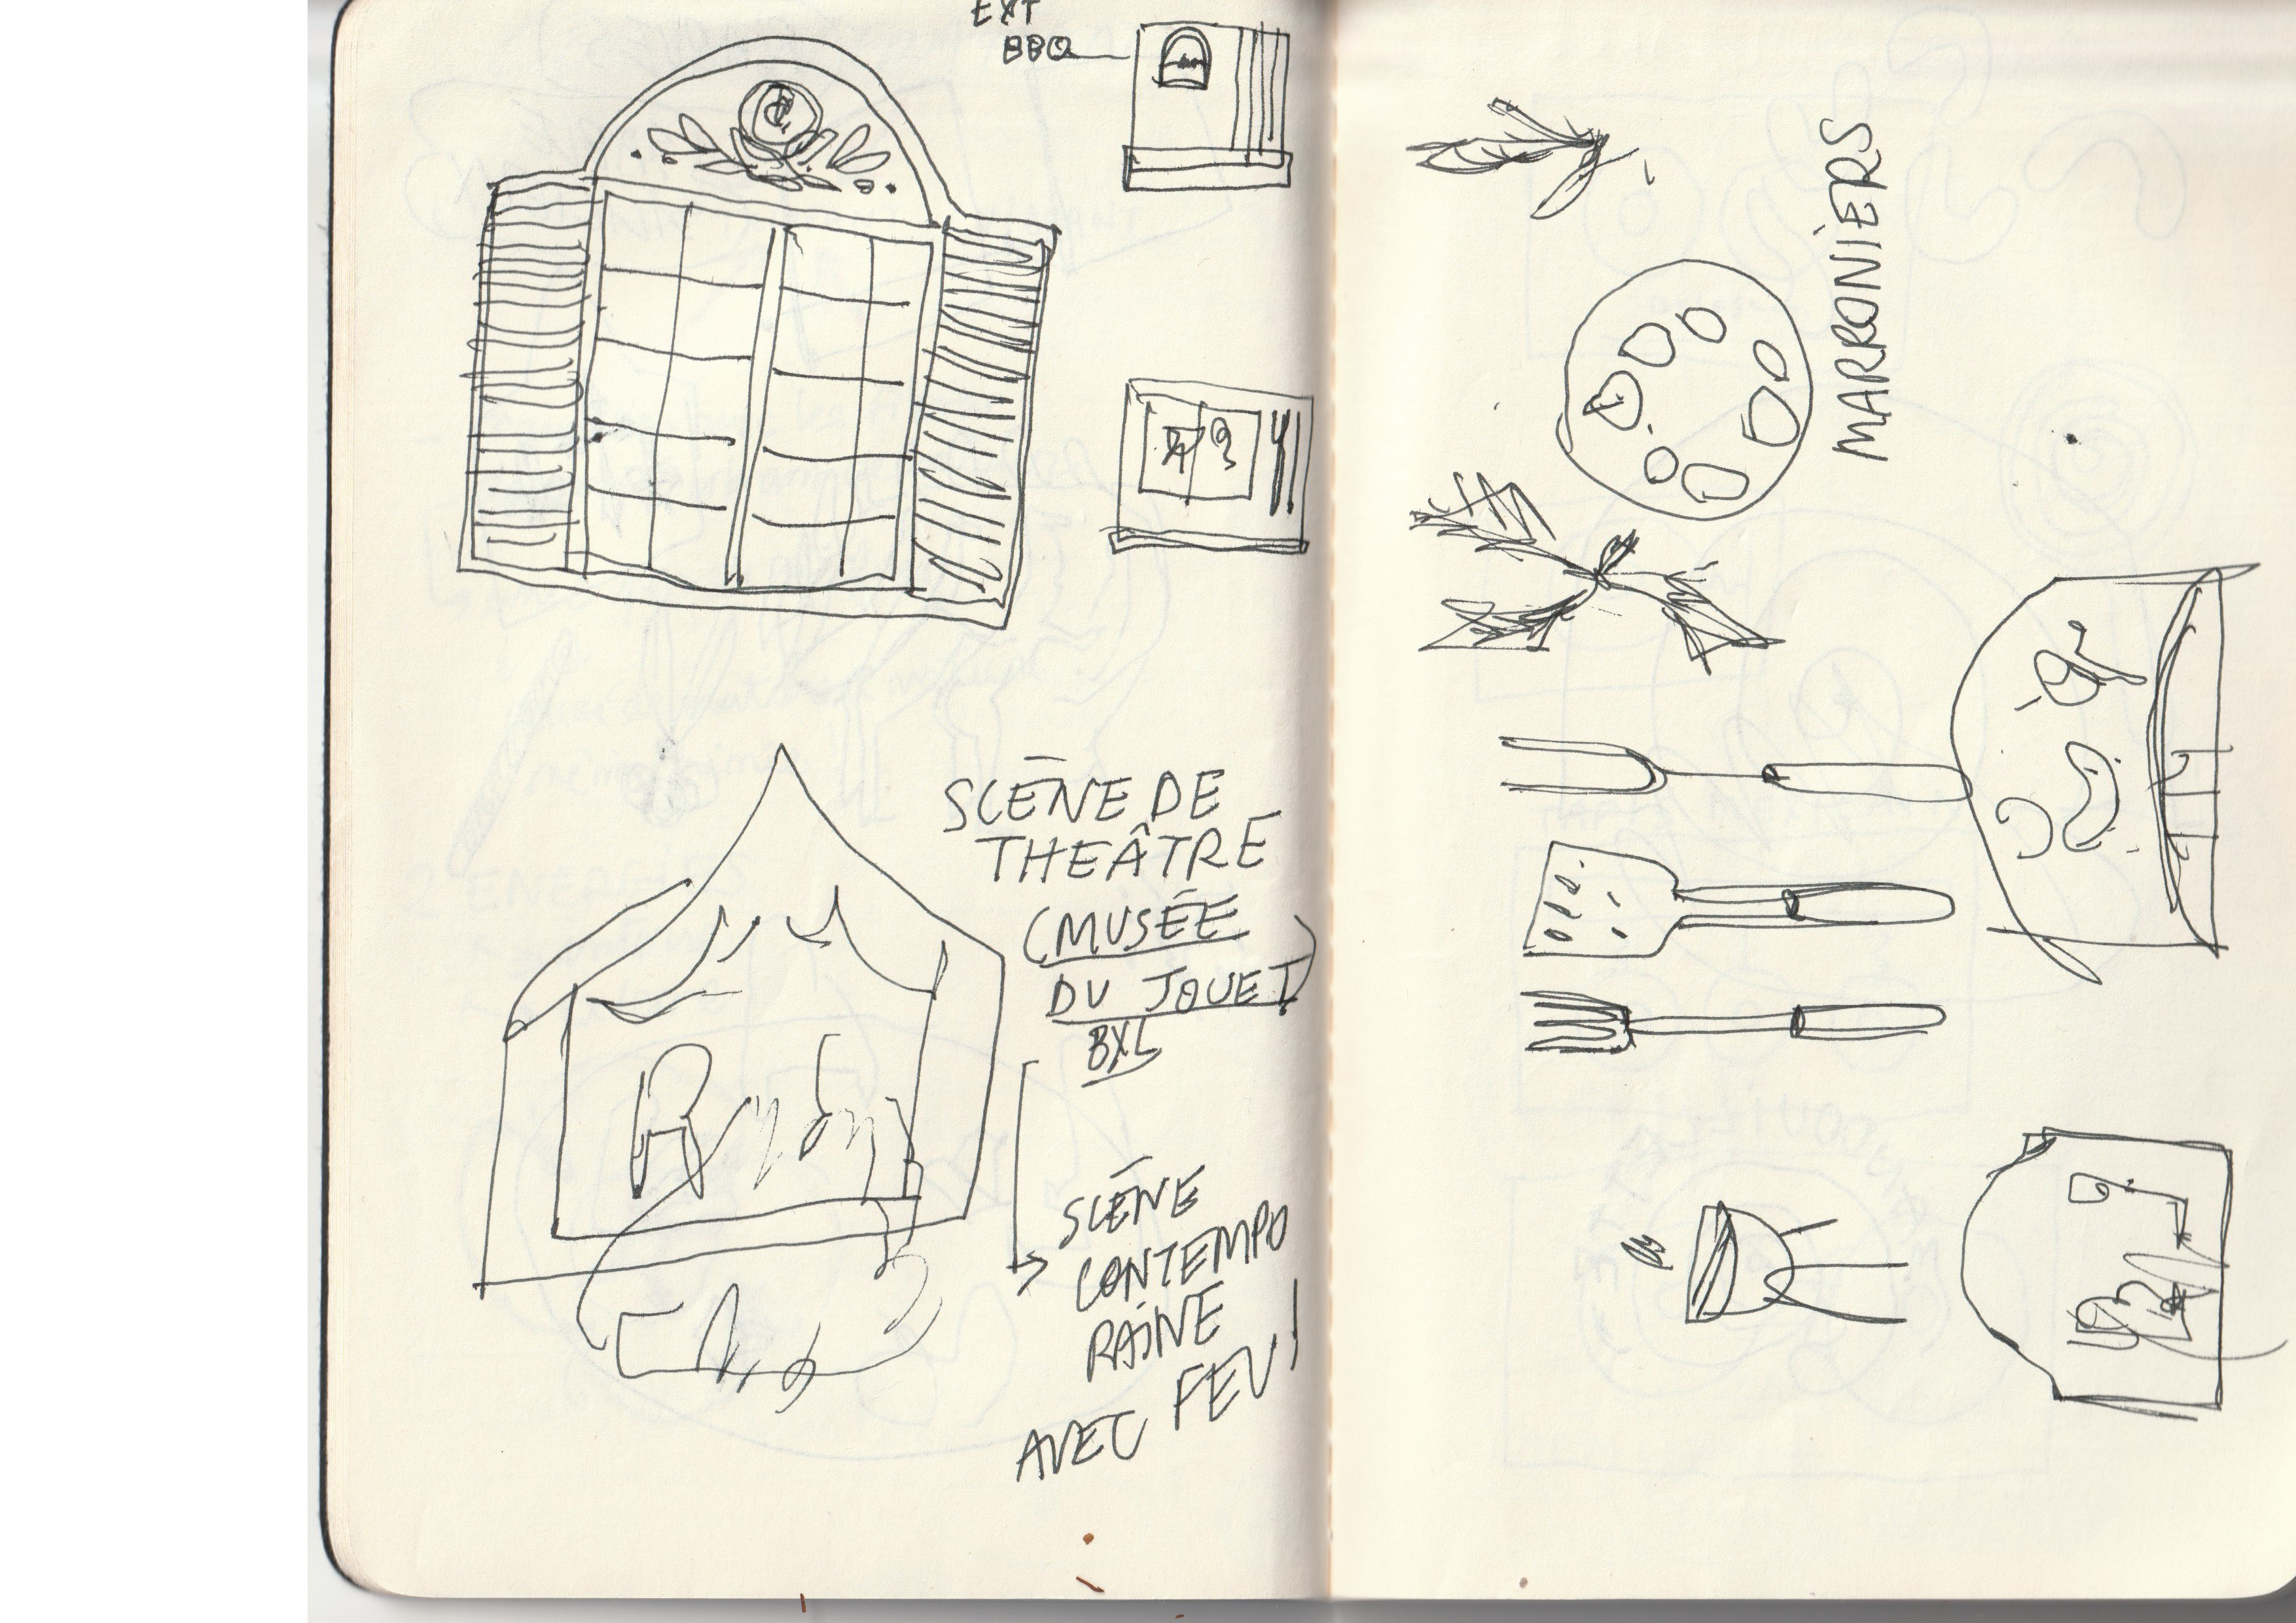 EXT
BBQ
SCĒNE DE
THEÂTRE
(MUSÉE
DU JOUET)
BXL
SCĒNE
CONTEMPO
RAINE
AVEC FEU!
MARRONIERS